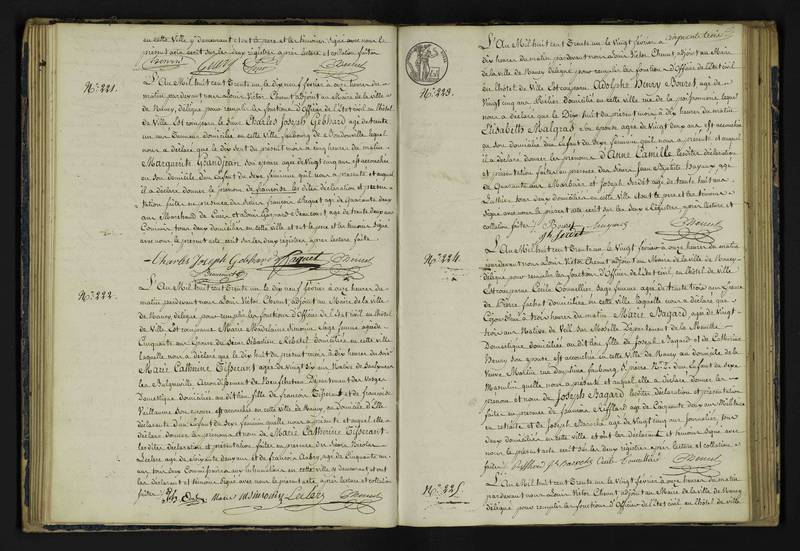 en cette Ville y demeurant et ont le pere et les témoins signé avec nous le
présent acte écrit sur les deux registres après lecture et collation faites
N.º 221.
L'An Mil huit cent Trente un, le dix neuf février à onze heures du
matin, par devant nous Louis Victor Chenut adjoint au Maire de la ville
de Nancy, délégué pour remplir les fonctions d'Officier de l'Etat civil en l'hôtel
de Ville Est comparu le Sieur Charles Joseph Gebhard agé de trente
un ans domicilié en cette ville, faubourg de Boudonville, lequel
nous a déclaré que le Dix sept du présent mois à cinq heures du matin
Marguerite Grandjean, son epouse agée de vingt cinq ans est accouchée
en son domicile d'un Enfant du sexe féminin qu'il nous a présenté et auquel
il a déclaré donner le prénom de françoise les dites déclaration et présen-
tation faites en présence des Sieurs françois Paquet agé de quarante deux
ans Marchand de Cuirs, et agé de trente deux ans
tous deux domiciliés en cette ville et ont le pere et les témoins signé
avec nous le présent acte, écrit sur les deux registres, après lecture faite.
Charles Joseph Gebhard Paquet Chenut
N.º 222.
L'An Mil huit cent Trente et un le dix neuf février à onze heures du
matin, pardevant nous Louis Victor Chenut, adjoint au Maire de la ville
de Nancy, délégué pour remplir les fonctions d'Officier de l'état civil en l'hôtel
de Ville Est comparue Marie Magdelaine Simonin Sage femme agée de
Cinquante ans Epouse du Sieur Sébastien domiciliée en cette ville
laquelle nous a déclaré que le dix huit du présent mois à dix heures du soir
Marie Catherine Tisserant agée de vingt dix ans Native de
les Bulgnéville Arrondissement de Neufchateau Département des Vosges
Domestique domiciliée au dit lieu, fille de francois Tisserant et de françoise
Vuillaume Son épouse est accouchée en cette ville de Nancy, au domicile d'Elle
déclarante d'un Enfant du Sexe féminin qu'elle nous a présenté et auquel elle a
déclaré donner les prénoms et nom de Marie Catherine Tisserant
les dites déclaration et présentation faites en présence des Sieurs Nicolas
Leclerc agé de soixante deux ans et de francois Aubry, agé de Cinquante un
ans tous deux Commissionnaires en cette ville y demeurant et ont
les déclarant et témoins Signé avec nous le présent acte, après lecture et collation
faites
Marie M. Simonin Leclerc Chenut
cinquante trois
N.º 223.
L'An Mil huit cent Trente un le Vingt février à
dix heures du matin pardevant nous Louis Victor Chenut, adjoint au Maire
de la ville de Nancy délégué pour remplir les fonctions d'Officier de l'Etat civil
en l'hôtel de Ville Est comparu Adolphe Henry Bouret, agé de
Vingt cinq ans Sellier Domicilié en cette ville rue de la poissonnerie, lequel
nous a déclaré que le Dix huit du Présent mois à dix heures du matin
Elisabeth Malgras son epouse agée de Vingt deux ans est accouchée
en son domicile d'un Enfant du sexe féminin qu'il nous a présenté et auquel
il a déclaré donner les prénoms d'Anne Camille les dites déclaration
et présentation faites en présence des Sieurs Jean Baptiste agé
de Quarante ans Marbrier et Joseph agé de trente huit ans
Luthier tous deux domiciliés en cette ville et ont le pere et les témoins
Signé avec nous le présent acte écrit sur les deux Registres après lecture et
collation faites
N.º 224.
L'An Mil huit cent Trente un, le Vingt février à onze heures du matin
pardevant nous Louis Victor Chenut adjoint au Maire de la ville de Nancy
délégué pour remplir les fonctions d'Officier de l'Etat civil, en l'hôtel de Ville
Est comparue Cécile Tonnellier Sage femme agée de trente trois ans
domiciliée en cette ville laquelle nous a déclaré que
à trois heures du matin Marie Bagard agée de vingt
trois ans Native de Département de la Moselle
Domestique domiciliée au dit lieu fille de Joseph Bagard et de Catherine
Henry son épouse est accouchée en cette Ville de Nancy au domicile de la
Veuve Martin rue faubourg St pierre N.º 2. d'un Enfant du sexe
Masculin quelle nous a présenté et auquel elle a déclaré donner le
prénom et nom de Joseph Bagard lesdites déclaration et présentation
faites en présence de francois agé de Cinquante deux ans Militaire
en retraite et de Joseph agé de Vingt cinq ans Journalier, tous
deux domiciliés en cette ville et ont les déclarant et témoins Signé avec
nous le présent acte écrit sur les deux registres après lecture et collation
faites
N.º 225.
L'An Mil huit cent Trente un le Vingt février à onze heures du matin
pardevant nous Louis Victor Chenut adjoint au Maire de la ville de Nancy
délégué pour remplir les fonctions d'Officier de l'Etat civil, en l'hôtel de ville